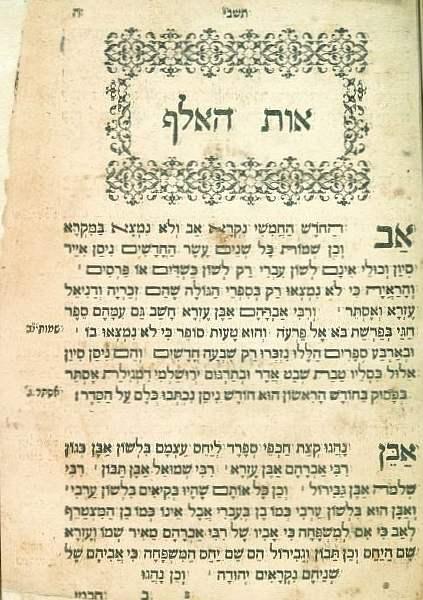 תשבי ה
אות האלף
אב החדש החמשי נקרא אב ולא נמצא במקרא
וכן שמות כל שנים עשר החדשים ניסן אייר
סיון וכולי אינם לשון עברי רק לשון כשדים או פרסים
והראיה כי לא נמצאו רק בספרי הגולה שהם זכריה ודניאל
עזרא ואסתר ורבי אברהם אבן עזרא חשב גם עמהם ספר
חגי בפרשת בא אל פרעה והוא טעות סופר כי לא נמצאו בו
שמות יב
ובארבע ספרים הללו נזכרו רק שבעה חדשים והם ניסן סיון
אלול כסליו טבת שבט אדר ובתרגום ירושלמי דמגילת אסתר
בפסוק בחודש הראשון הוא חודש ניסן נכתבו כלם על הסדר:
אסתר ג
אבן נהגו קצת חכמי ספרד ליחס עצמם בלשון אבן כגון
רבי אברהם אבן עזרא רבי שמואל אבן תבון רבי
שלמה אבן גבירול וכן כל אותם שהיו בקיאים בלשון ערבי
ואבן הוא בלשון ערבי כמו בן בעברי אבל אינו כמו בן המצטרף
לאב כי אם למשפחה כי אביו של רבי אברהם מאיר שמו ועזרא
שם היחס וכן תבון וגבירול הם שם יחס המשפחה כי אביהם של
שניהם נקראים יהודה וכן נהגו
ב חכמי